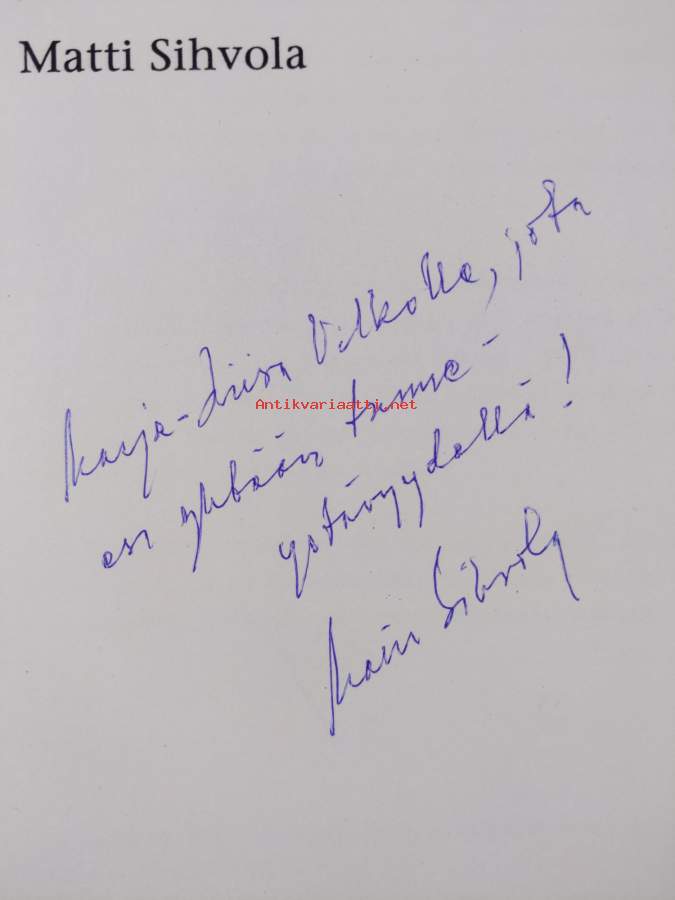 Matti Sihvola
Marja-Liisa Vilkolle, jota
en yhtään tunne -
ystävyydellä!
Matti Sihvola
Antikvariaatti.net